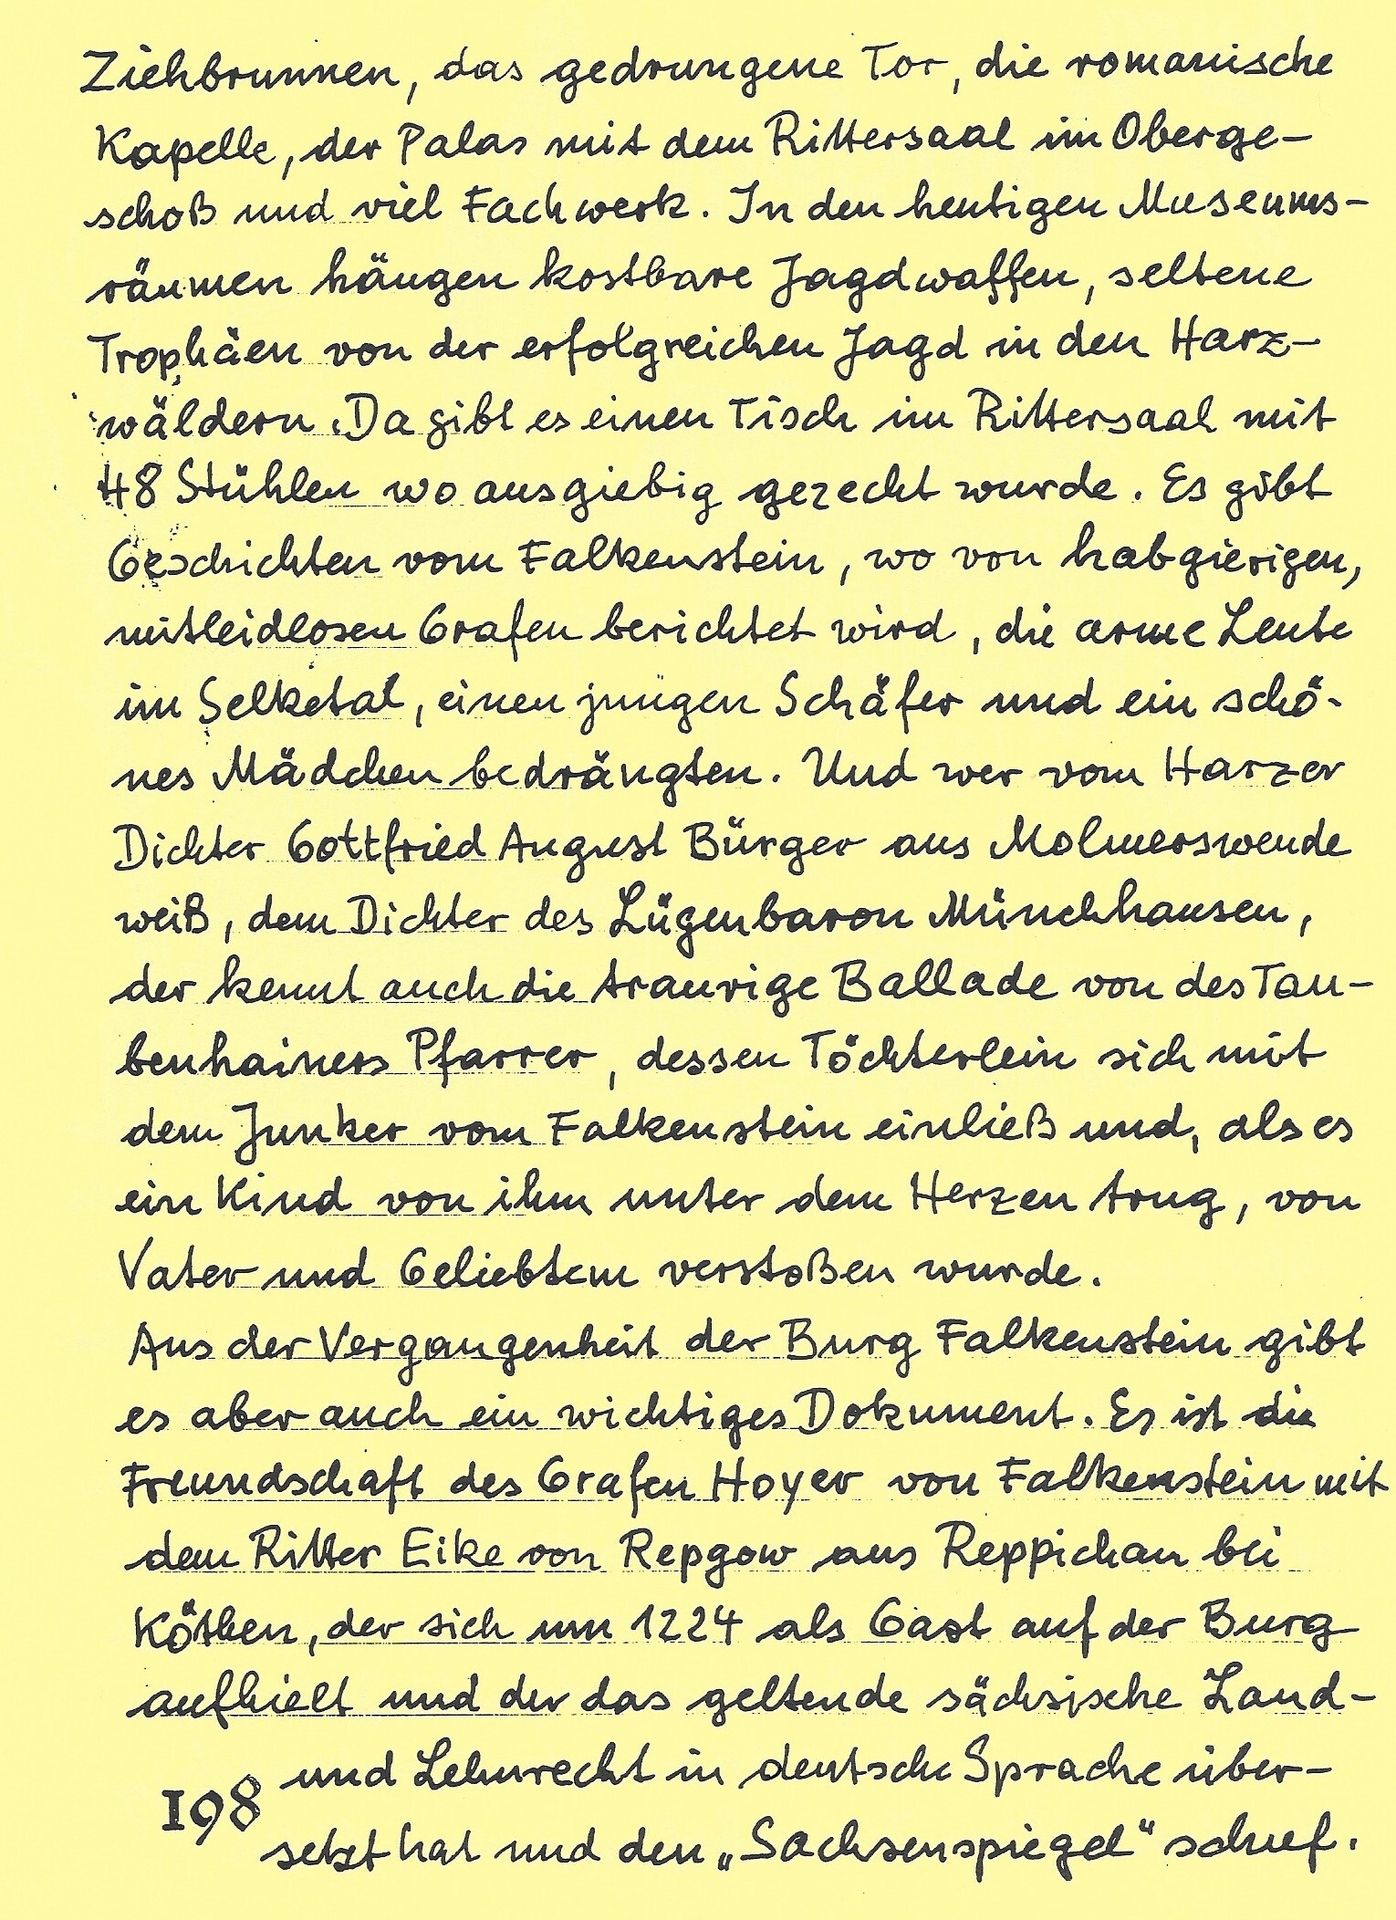 Ziehbrunnen, das gedrungene Tor, die romanische
Kapelle, der Palas mit dem Rittersaal im Oberge-
schoß und viel Fachwerk. In den heutigen Museums-
räumen hängen kostbare Jagdwaffen, seltene
Trophäen von der erfolgreichen Jagd in den Harz-
wäldern. Da gibt es einen Tisch im Rittersaal mit
48 Stühlen wo ausgiebig gezecht wurde. Es gibt
Geschichten vom Falkenstein, wo von habgierigen,
mitleidlosen Grafen berichtet wird, die arme Leute
im Selketal, einen jungen Schäfer und ein schö-
nes Mädchen bedrängten. Und wer vom Harzer
Dichter Gottfried August Bürger aus Molmerswende
weiß, dem Dichter des Lügenbaron Münchhausen,
der kennt auch die traurige Ballade von des Tau-
benhainers Pfarrer, dessen Töchterlein sich mit
dem Junker vom Falkenstein einließ und, als es
ein Kind von ihm unter dem Herzen trug, von
Vater und Geliebtem verstoßen wurde.
Aus der Vergangenheit der Burg Falkenstein gibt
es aber auch ein wichtiges Dokument. Es ist die
Freundschaft des Grafen Hoyer von Falkenstein mit
dem Ritter Eike von Repgow aus Reppichau bei
Köthen, der sich um 1224 als Gast auf der Burg
aufhielt und der das geltende sächsische Land-
und Lehnrecht in deutsche Sprache über-
setzt hat und den „Sachsenspiegel" schuf.
198